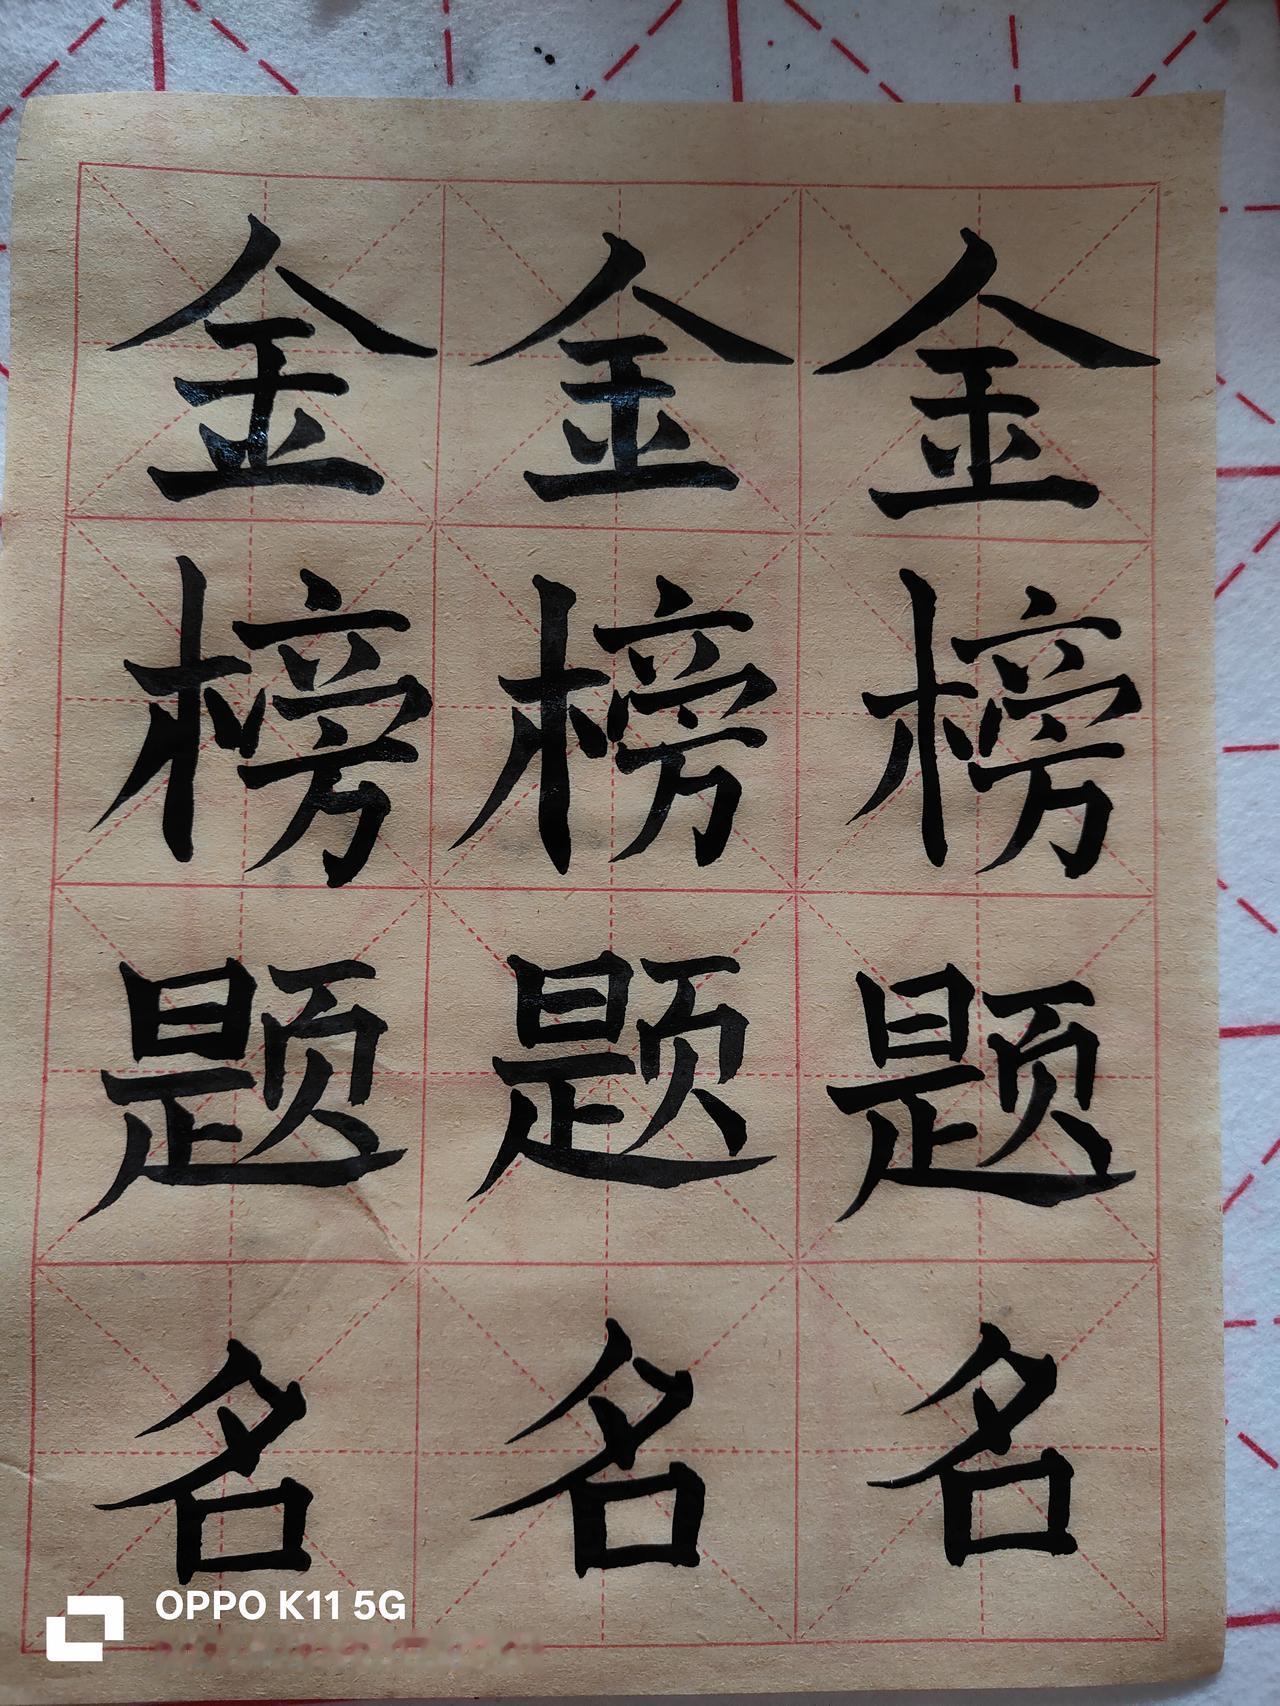 金金金
榜榜榜
题题题
名名名
OPPO K11 5G